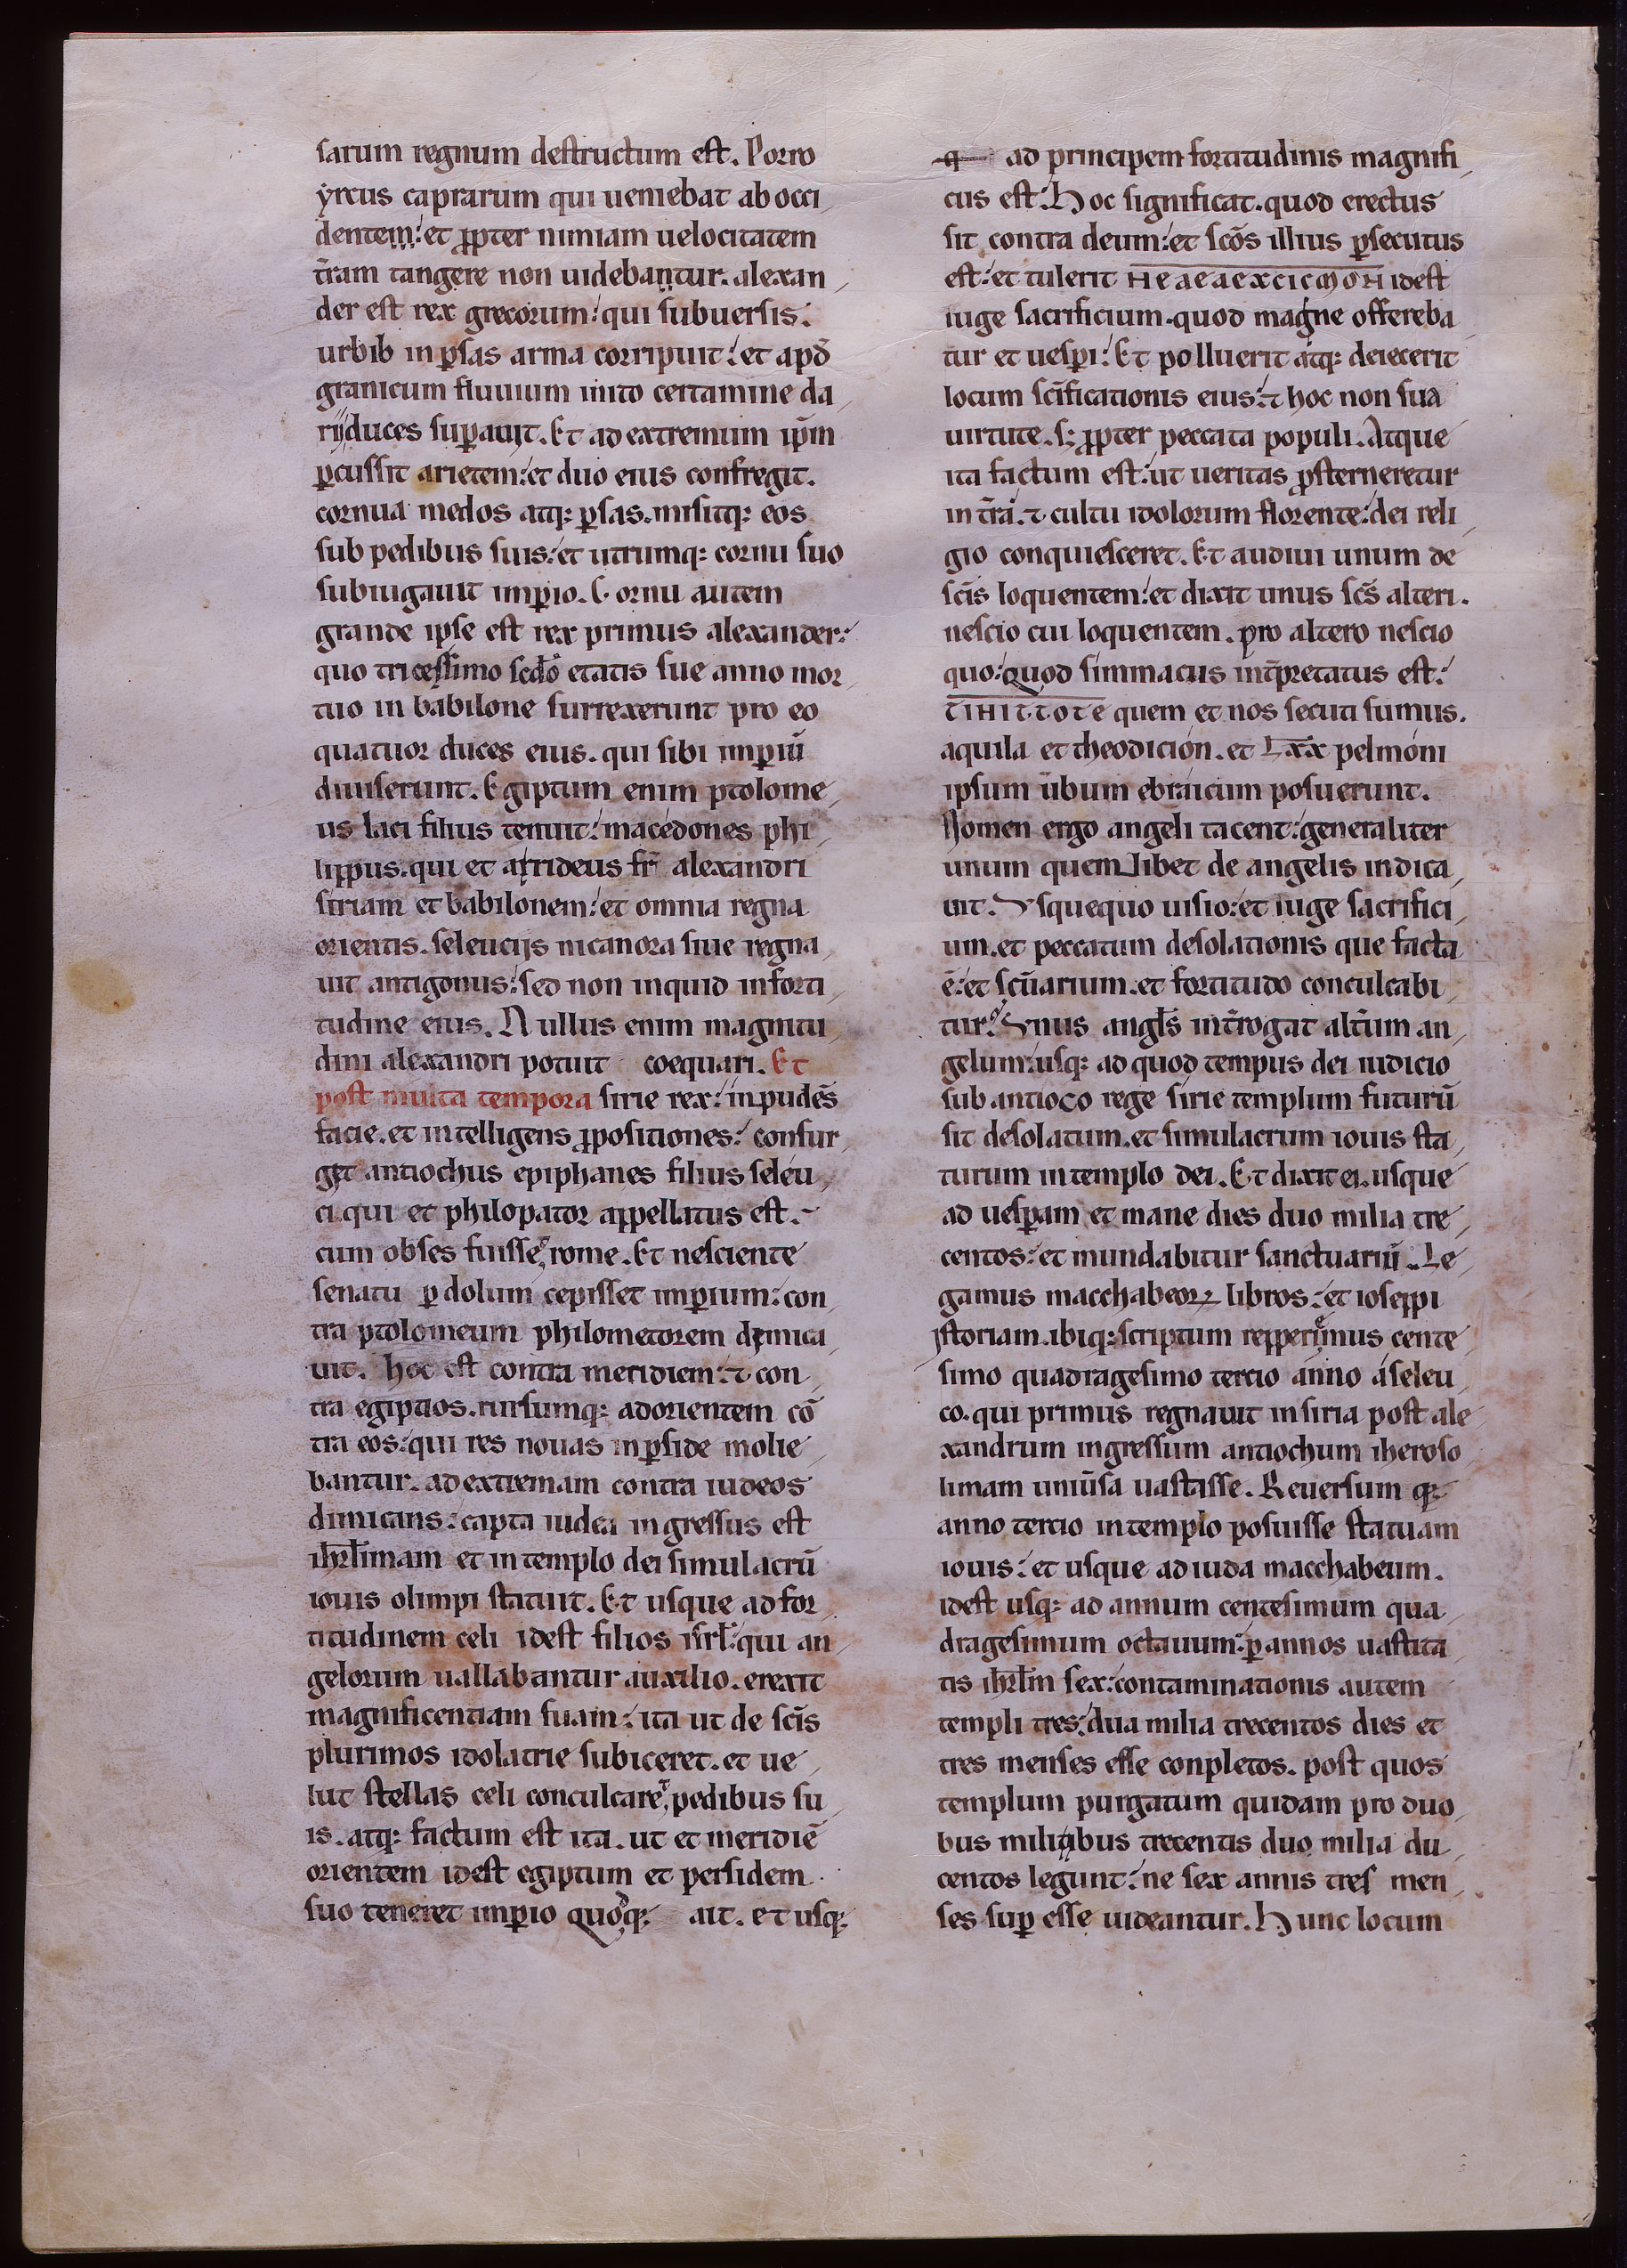 sarum regnum destructum est. Porro
yrcus caprarum qui ueniebat ab occi
dentem: et ꝓpter nimiam uelocitatem
tr̄am tangere non uidebantur. alexan
der est rex grecorum: qui subuersis.
urbib in ꝑsas arma corripuit: et apd̄
granicum fluuium inito certamine da
rij duces suꝑauit. Et ad extremum ip̄m
ꝑcussit arietem: et duo eius confregit.
cornua medos atq: ꝑsas. misitq: eos
sub pedibus suis: et utrumq: cornu suo
subiugauit imꝑio. Cornu autem
grande ipse est rex primus alexander:
quo tricessimo scd̄o etatis sue anno mor
tuo in babilone surrexerunt pro eo
quatuor duces eius. qui sibi imꝑiū
diuiserunt. Egiptum enim ptolome
us laci filius tenuit: macedones phi
lippus. qui et arrideus fr̄ alexandri
siriam et babilonem: et omnia regna
orientis. seleucijs nicanora siue regna
uit antigonus: sed non inquid in forti
tudine eius. Nullus enim magnitu
dini alexandri potuit coequari. Et
post multa tempora sirie rex: inpudēs
facie. et intelligens ꝓpositiones: consur
get antiochus epiphanes filius seleu
ci. qui et philopator appellatus est.
cum obses fuisset rome. Et nesciente
senatu ꝑ dolum cepisset imꝑium: con
tra ptolomeum philometorem dimica
uit. hoc est contra meridiem: ⁊ con
tra egiptios. rursumq: ad orientem cō
tra eos: qui res nouas in ꝑside molie
bantur. ad extremam contra iudeos
dimicans: capta iudea ingressus est
ihrl̄imam et in templo dei simulacrū
iouis olimpi statuit. Et usque ad for
titudinem celi idest filios isrl̄: qui an
gelorum uallabantur auxilio. erexit
magnificentiam suam: ita ut de sc̄is
plurimos idolatrie subiceret. et ue
lut stellas celi conculcaret pedibus su
is. atq: factum est ita. ut et meridiē
orientem idest egiptum et persidem
suo teneret imꝑio Quodq: ait. et usq:
ad principem fortitudinis magnifi
cus est: Hoc significat. quod erectus
sit contra deum: et sc̄os illius ꝑsecutus
est: et tulerit idest
iuge sacrificium. quod magne offereba
tur et uesꝑi: Et polluerit atq: deiecerit
locum sc̄ificationis eius: ⁊ hoc non sua
uirtute. s; ꝓpter peccata populi. Atque
ita factum est: ut ueritas ꝓsterneretur
in tr̄a. ⁊ cultu idolorum florente: dei reli
gio conquiesceret. Et audiui unum de
sc̄is loquentem: et dixit unus sc̄s alteri.
nescio cui loquentem. pro altero nescio
quo: Quod simmacus int̄pretatus est:
quem et nos secuti sumus.
aquila et theodicion. et Lxx pelmoni
ipsum ūbum ebraicum posuerunt.
Nomen ergo angeli tacent: generaliter
unum quemlibet de angelis indica
uit. Vsquequo uisio: et iuge sacrifici
um. et peccatum desolationis que facta
ē: et scūarium. et fortitudo conculcabi
tur. Vnus angl̄s int̄rogat alt̄um an
gelum: usq: ad quod tempus dei iudicio
sub antioco rege sirie templum futurū
sit desolatum. et simulacrum iouis sta
turum in templo dei. Et dixit ei. usque
ad uesꝑam et mane dies duo milia tre
centos: et mundabitur sanctuariū. Le
gamus macchabeorꝝ libros: et ioseppi
istoriam. ibiq: scriptum repperimus cente
simo quadragesimo tercio anno a seleu
co. qui primus regnauit in siria post ale
xandrum ingressum antiochum iheroso
limam uniūsa uastasse. Reuersum q:
anno tercio in templo posuisse statuam
iouis: et usque ad iuda macchabeum.
idest usq: ad annum centesimum qua
dragesimum octauum: ꝑ annos uastita
tis ihrl̄m sex: contaminationis autem
templi tres: dua milia trecentos dies et
tres menses esse conpletos. post quos
templum purgatum quidam pro duo
bus milibus trecentis duo milia du
centos legunt: ne sex annis tres men
ses suꝑ esse uideantur. Hunc locum